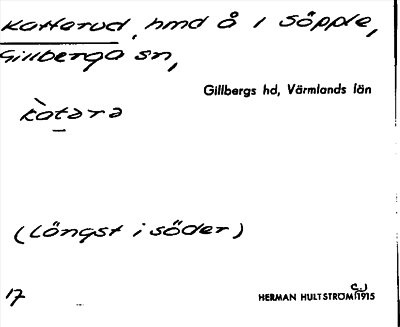 Katterud, hmd å i Söpple,
Gillberga sn,
Gillbergs hd, Värmlands län
kàtara
(Längst i söder)
17
HERMAN HULTSTRÖM 1915